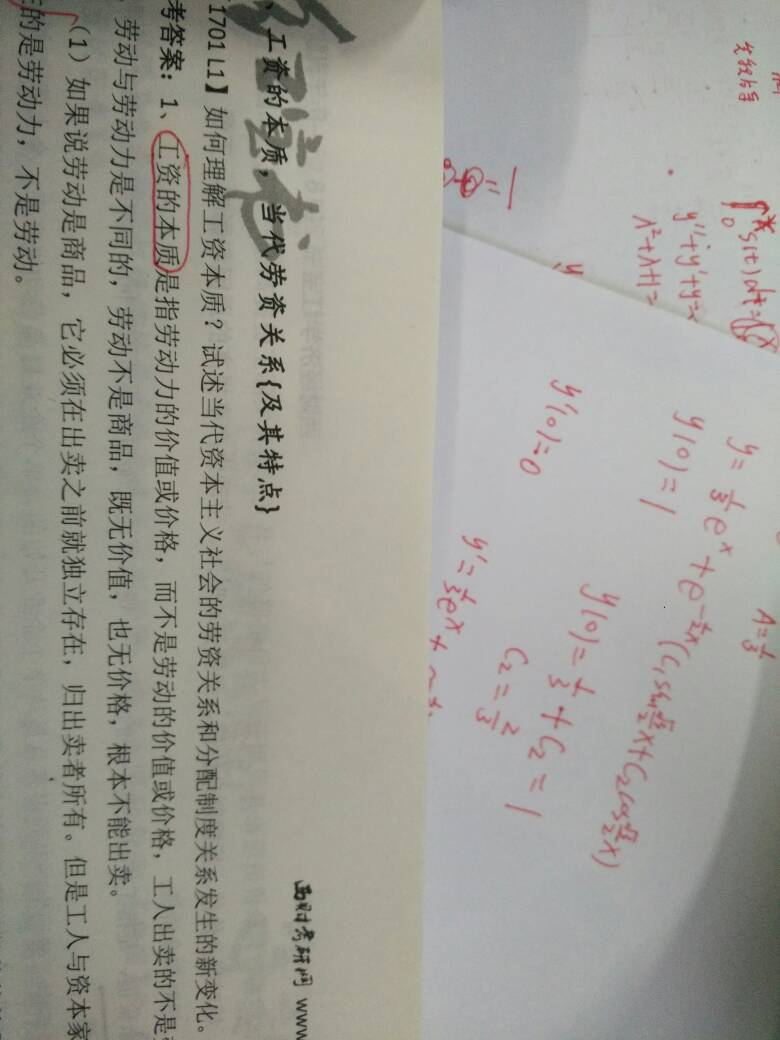 、工资的本质，当代劳资关系{及其特点}
1701 L1】如何理解工资本质？试述当代资本主义社会的劳资关系和分配制度关系发生的新变化。
考答案：1、工资的本质是指劳动力的价值或价格，而不是劳动的价值或价格，工人出卖的不是
劳动与劳动力是不同的，劳动不是商品，既无价值，也无价格，根本不能出卖。
（1）如果说劳动是商品，它必须在出卖之前就独立存在，归出卖者所有。但是工人与资本家
的是劳动力，不是劳动。
西财考研网 www
y''+y'+y=
λ²+λ+1=
A=1/3
y=1/3e^x+e^{-1/2x}(C₁sin√3/2x+C₂cos√3/2x)
y(0)=1
y(0)=1/3+C₂=1
C₂=2/3
y'(0)=0
y'=1/3e^x+